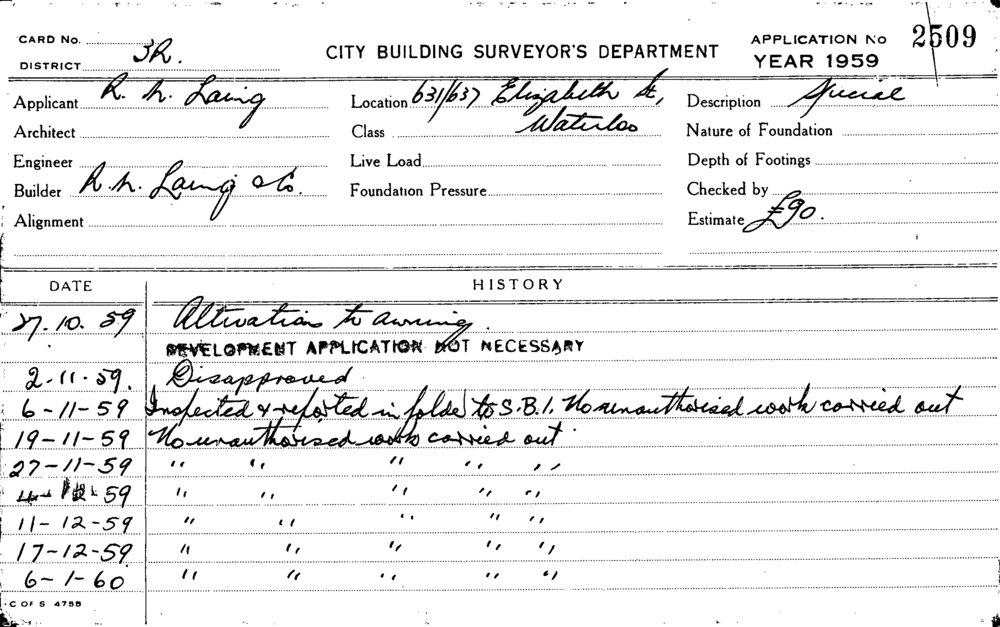 CARD No.
CITY BUILDING SURVEYOR'S DEPARTMENT
APPLICATION No 2509
DISTRICT 3R.
YEAR 1959
Applicant R. N. Laing
Location 631/637 Elizabeth St,
Waterloo
Description Special
Architect
Class
Nature of Foundation
Engineer
Live Load
Depth of Footings
Builder R. N. Laing & Co.
Foundation Pressure
Checked by
Alignment
Estimate £90.
DATE HISTORY
27.10.59 Alterations to awning.
DEVELOPMENT APPLICATION NOT NECESSARY
2-11-59. Disapproved
6-11-59 Inspected & reported in folder to S.B.I. No unauthorised work carried out
19-11-59 No unauthorised work carried out
27-11-59 " " " " "
4-12-59 " " " " "
11-12-59 " " " " "
17-12-59 " " " " "
6-1-60 " " " " "
C OF S 4755